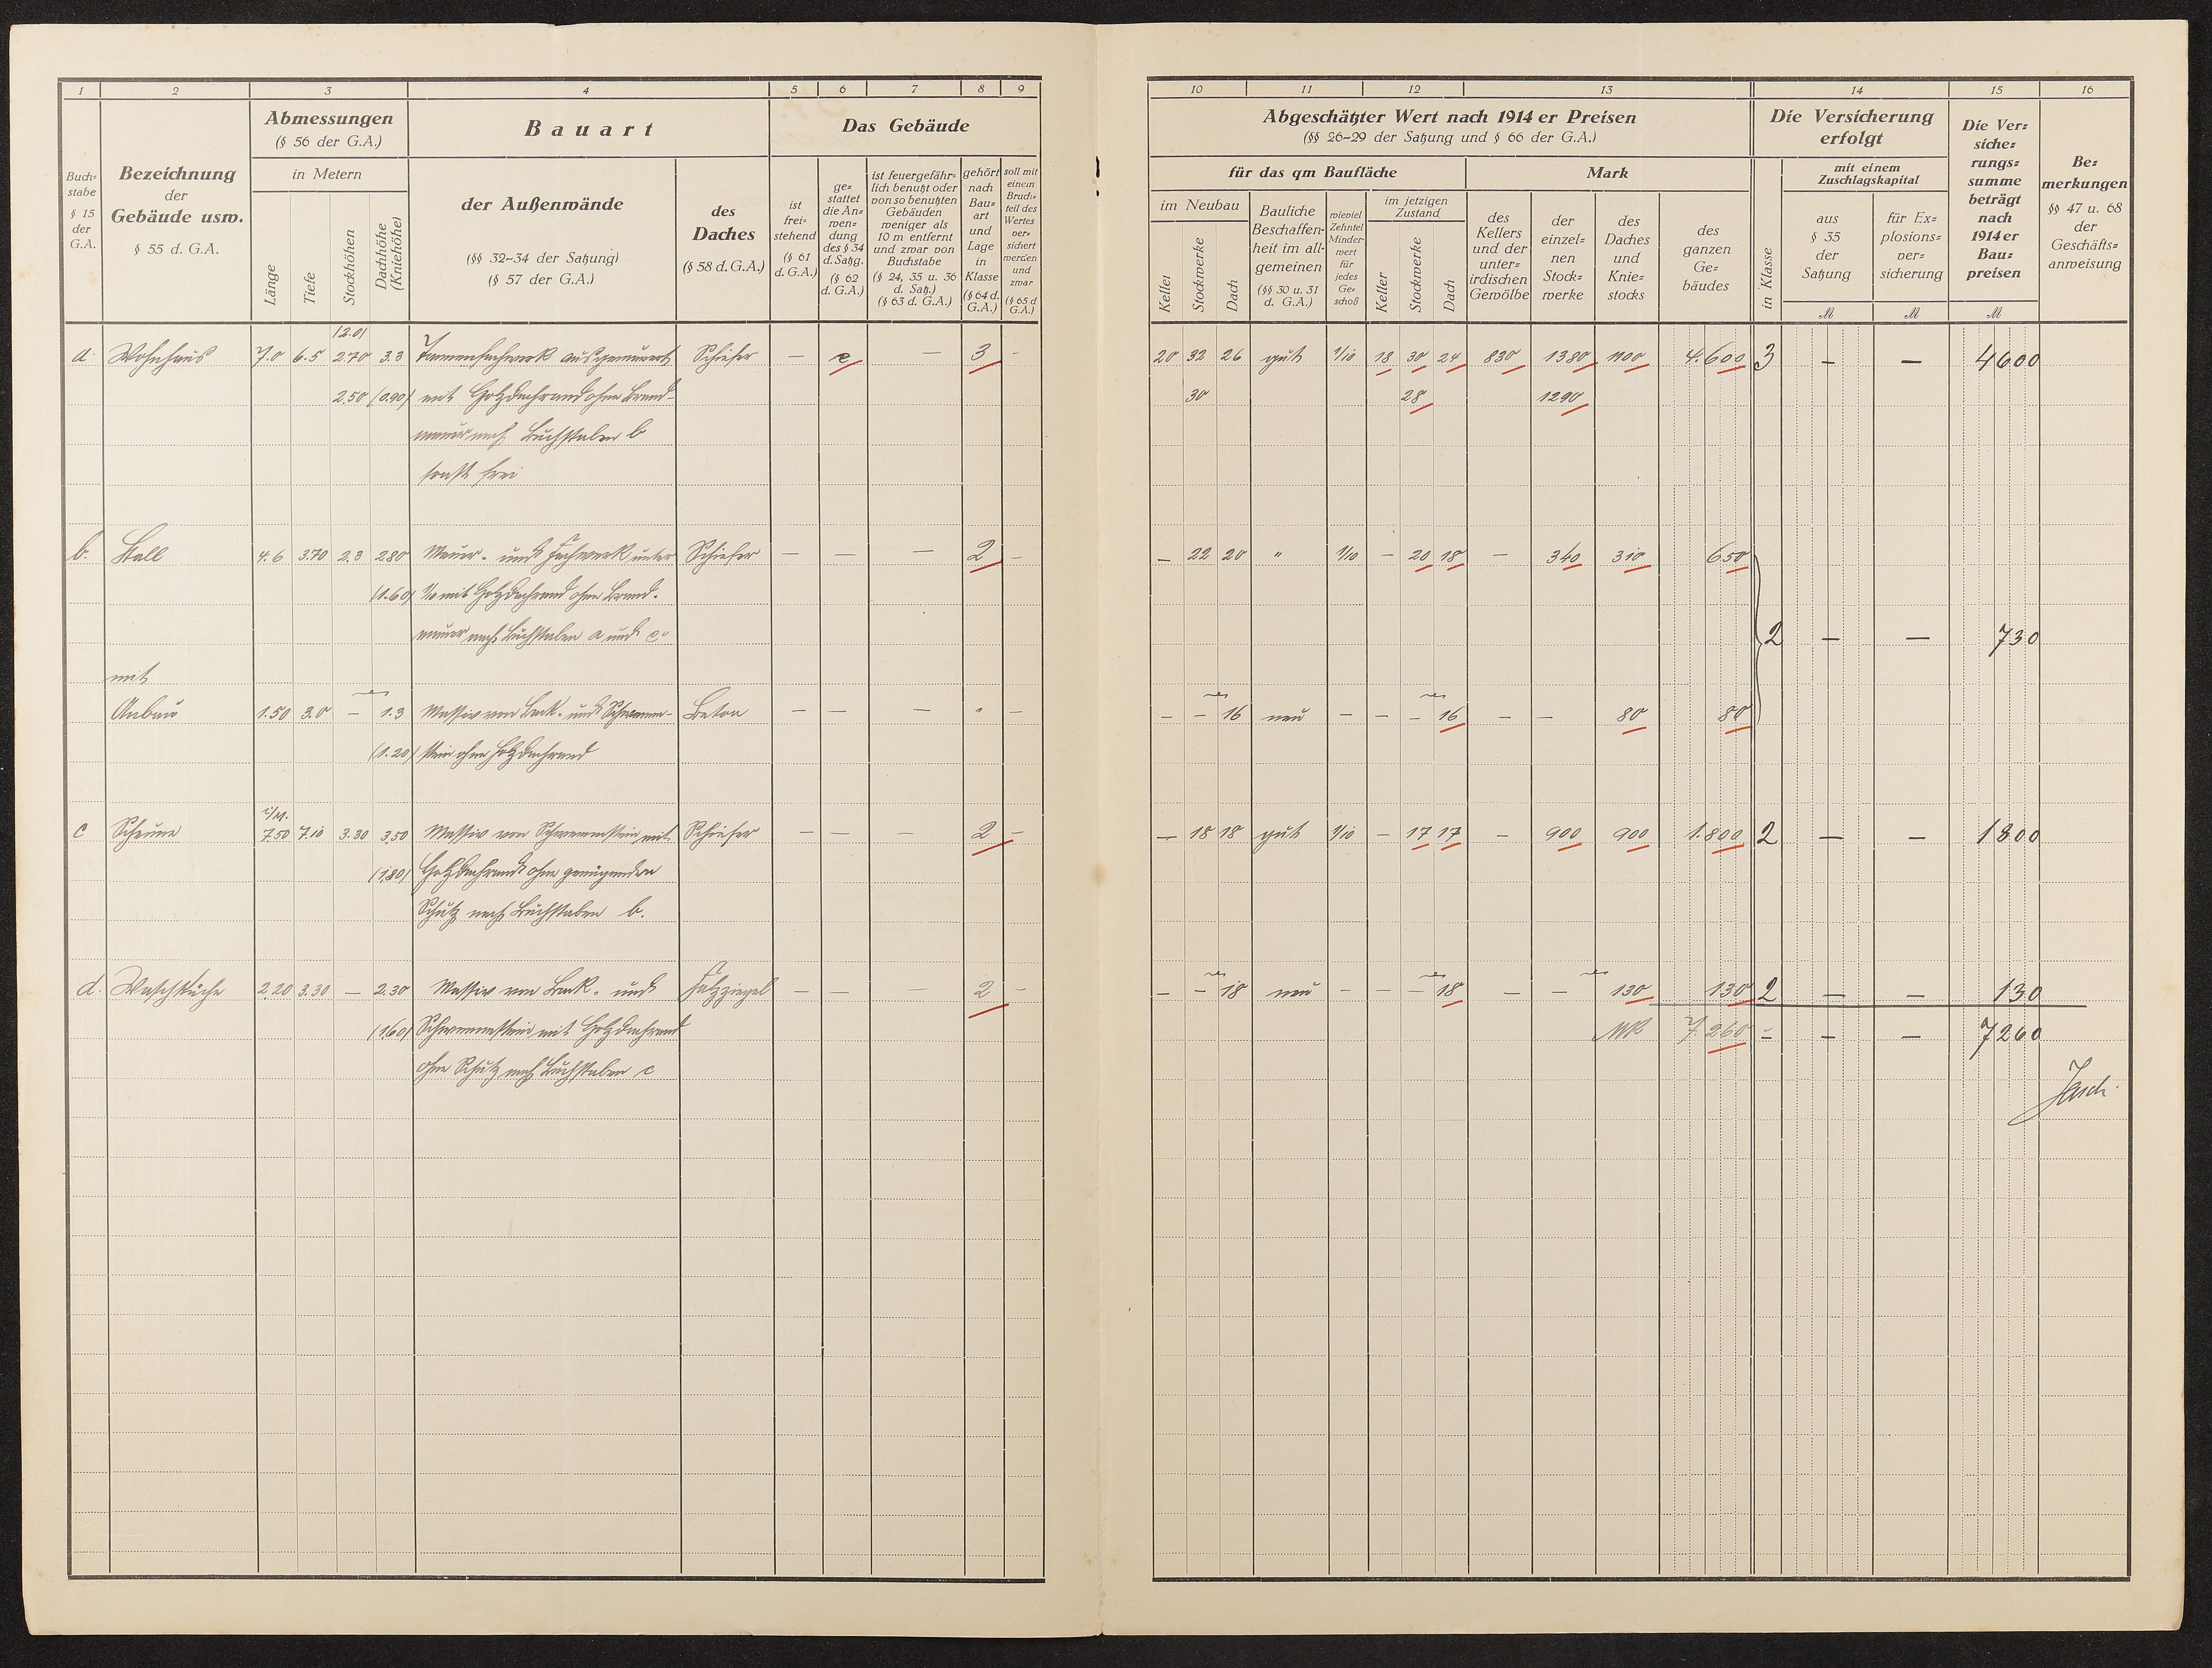 1 2 3 4 5 6 7 8 9
Buch=
stabe
§ 15
der
G.A.
Bezeichnung
der
Gebäude usw.
§ 55 d. G.A.
Abmessungen
(§ 56 der G.A.)
in Metern
Länge
Tiefe
Stockhöhen
Dachhöhe
(Kniehöhe)
Bauart
der Außenwände
(§§ 32-34 der Satzung)
(§ 57 der G.A.)
des
Daches
(§ 58 d. G.A.)
Das Gebäude
ist
frei=
stehend
(§ 61
d. G.A.)
ge=
stattet
die An=
wen=
dung
des § 34
d. Satzg.
(§ 62
d. G.A.)
ist feuergefähr=
lich benutzt oder
von so benutzten
Gebäuden
weniger als
10 m entfernt
und zwar von
Buchstabe
(§ 24, 35 u. 36
d. Satz.)
(§ 63 d. G.A.)
gehört
nach
Bau=
art
und
Lage
in
Klasse
(§ 64 d.
G.A.)
soll mit
einem
Bruch=
teil des
Wertes
ver=
sichert
werden
und
zwar
(§ 65 d
G.A.)
12.01
a. Wohnhaus 7.0 6.5 2.70 3.3 Tannenfachwerk ausgemauert Schiefer — e — 3 -
2.50 (0.90) mit Holzdachrand ohne Brand-
mauer nach Buchstaben b
sonst frei
b. Stall 4.6 3.70 2.3 2.80 Mauer- und Fachwerk unter Schiefer — — — 2 -
(1.60) ½ mit Holzdachrand ohne Brand-
mauer nach Buchstaben a und c.
mit
Anbau 1.50 3.0 — 1.3 Massiv von Back- und Schwemm- Beton — — — " -
(1.20) stein ohne Holzdachrand
i/M.
c Scheune 7.50 7.10 3.30 3.50 Massiv von Schwemmstein mit Schiefer — — — 2 -
(1.80) Holzdachrand ohne genügenden
Schutz nach Buchstaben b.
d. Waschküche 2.20 3.30 — 2.30 Massiv von Back- und Falzziegel — — — 2 -
(1.60) Schwemmstein mit Holzdachrand
ohne Schutz nach Buchstaben c
10 11 12 13 14 15 16
Abgeschätzter Wert nach 1914 er Preisen
(§§ 26-29 der Satzung und § 66 der G.A.)
für das qm Baufläche
Mark
im Neubau
Keller
Stockwerke
Dach
Bauliche
Beschaffen=
heit im all=
gemeinen
(§§ 30 u. 31
d. G.A.)
wieviel
Zehntel
Minder=
wert
für
jedes
Ge=
schoß
im jetzigen
Zustand
Keller
Stockwerke
Dach
des
Kellers
und der
unter=
irdischen
Gewölbe
der
einzel=
nen
Stock=
werke
des
Daches
und
Knie=
stocks
des
ganzen
Ge=
bäudes
Die Versicherung
erfolgt
in Klasse
mit einem
Zuschlagskapital
aus
§ 35
der
Satzung
für Ex=
plosions=
ver=
sicherung
M M M
Die Ver=
siche=
rungs=
summe
beträgt
nach
1914 er
Bau=
preisen
Be=
merkungen
§§ 47 u. 68
der
Geschäfts=
anweisung
20 32 26 gut 1/10 18 30 24 830 1380 1100 4.600 3 — — 4600
30 28 1290
— 22 20 " 1/10 — 20 18 — 340 310 650
2 — — 730
— — 16 neu — — — 16 — — 80 80
— 18 18 gut 1/10 — 17 17 — 900 900 1.800 2 — — 1800
— — 18 neu — — — 18 — — 130 130 2 — — 130
Mk 7.260 - — — 7260